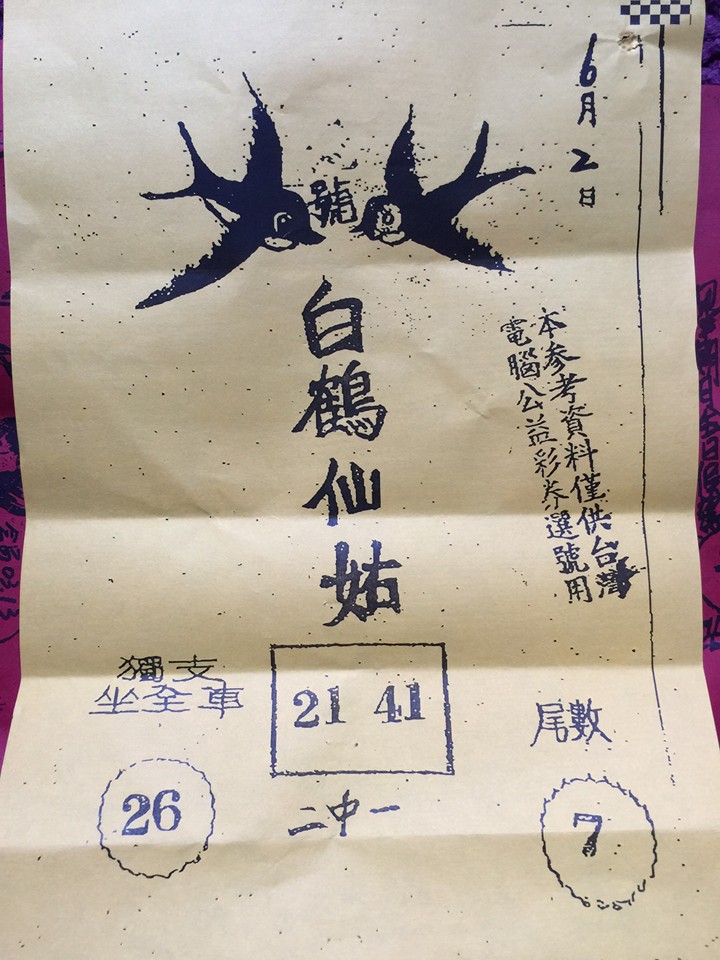 6月2日
號
白鶴仙姑
本参考資料僅供台灣
電腦公益彩券選號用
獨支
坐全車
26
21 41
二中一
尾數
7